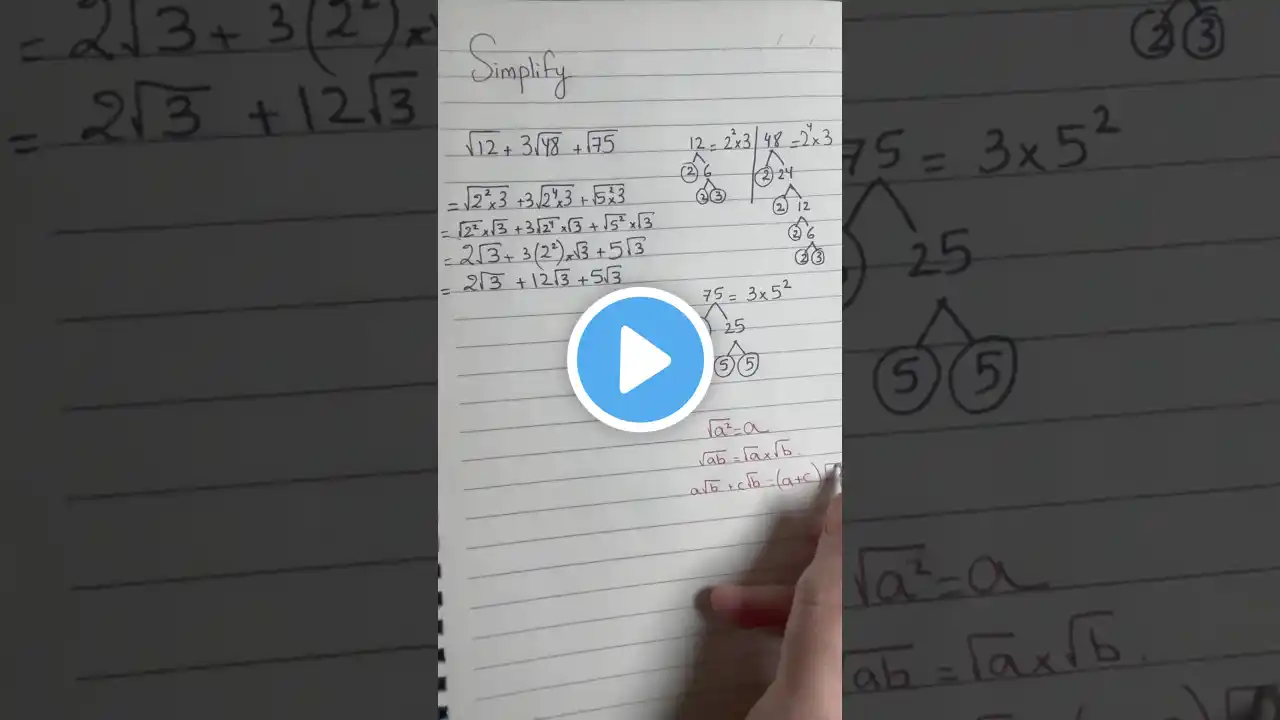 Simplify
√12 + 3√48 + √75
= √2²×3 + 3√2⁴×3 + √5²×3
= √2² × √3 + 3√2⁴ × √3 + √5² × √3
= 2√3 + 3(2²)×√3 + 5√3
= 2√3 + 12√3 + 5√3
12 = 2² × 3
2 6
2 3
48 = 2⁴ × 3
2 24
2 12
2 6
2 3
75 = 3 × 5²
25
5 5
√a² = a
√ab = √a × √b
a√b + c√b = (a+c)
= 2√3 + 3(2²)×
= 2√3 + 12√3
2 3
75 = 3 × 5²
25
5 5
√a² = a
√ab = √a × √b